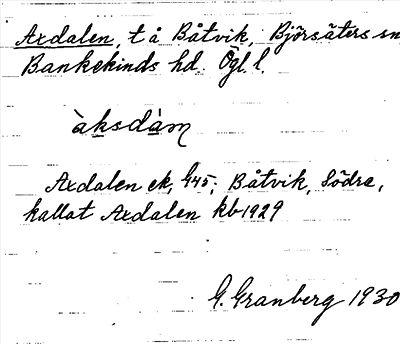 Axdalen, t å Båtvik, Björsäters sn
Bankekinds hd. Ögl. l.
àksdàɱ
Axdalen ek, G45; Båtvik, Södra,
kallat Axdalen kb 1929
G. Granberg 1930